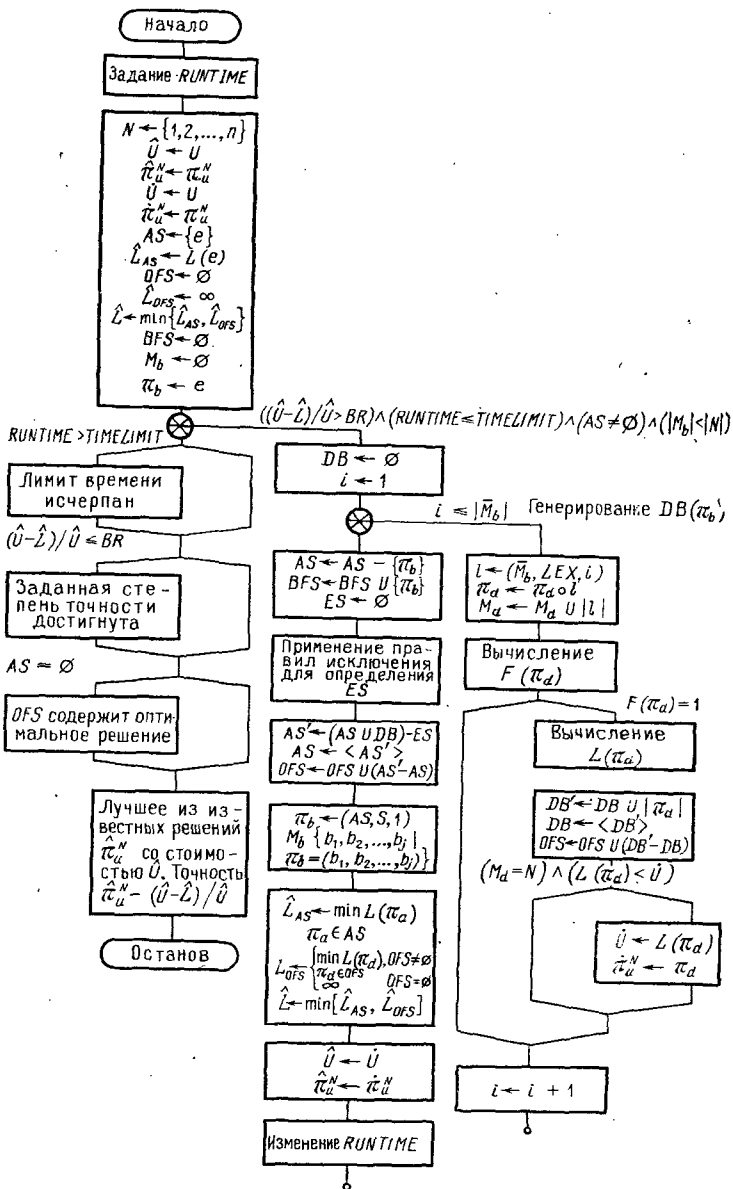 Начало
Задание RUNTIME
N ← {1,2,...,n}
Û ← U
π̂ᵤᴺ ← πᵤᴺ
U̇ ← U
π̇ᵤᴺ ← πᵤᴺ
AS ← {e}
L̂_AS ← L(e)
OFS ← ∅
L̂_OFS ← ∞
L̂ ← min{L̂_AS, L̂_OFS}
BFS ← ∅
M_b ← ∅
π_b ← e
((Û-L̂)/Û > BR)∧(RUNTIME ≤ TIMELIMIT)∧(AS ≠ ∅)∧(|M_b| < |N|)
RUNTIME > TIMELIMIT
Лимит времени
исчерпан
(Û-L̂)/Û ≤ BR
Заданная сте-
пень точности
достигнута
AS = ∅
OFS содержит опти-
мальное решение
Лучшее из из-
вестных решений
π̂ᵤᴺ со стоимо-
стью Û. Точность
π̂ᵤᴺ - (Û-L̂)/Û
Останов
DB ← ∅
i ← 1
i ≤ |M̄_b| Генерирование DB(π_b)
AS ← AS - {π_b}
BFS ← BFS U {π_b}
ES ← ∅
Применение пра-
вил исключения
для определения
ES
AS' ← (AS U DB) - ES
AS ← <AS'>
OFS ← OFS U (AS' - AS)
π_b ← (AS, S, 1)
M_b {b₁, b₂,..., b_j |
π_b = (b₁, b₂,..., b_j)}
L̂_AS ← min L(π_a)
π_a ∈ AS
L_OFS ← { min L(π_d), OFS ≠ ∅
π_d ∈ OFS
∞ OFS = ∅
L̂ ← min[L̂_AS, L̂_OFS]
Û ← U̇
π̂ᵤᴺ ← π̇ᵤᴺ
Изменение RUNTIME
l ← (M̄_b, LEX, i)
π_d ← π_d ∘ l
M_d ← M_d U |l|
Вычисление
F(π_d)
F(π_d) = 1
Вычисление
L(π_d)
DB' ← DB U |π_d|
DB ← <DB'>
OFS ← OFS U (DB' - DB)
(M_d = N) ∧ (L(π_d) < U̇)
U̇ ← L(π_d)
π̇ᵤᴺ ← π_d
i ← i + 1